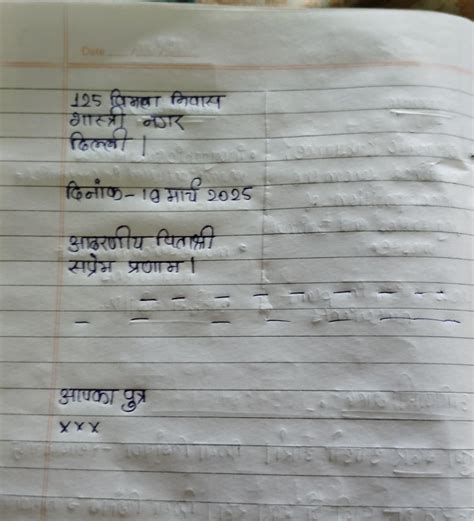 Date
125 विमला निवास
शास्त्री नगर
दिल्ली।
दिनांक - 18 मार्च 2025
आदरणीय पिताश्री
सप्रेम प्रणाम।
आपका पुत्र
xxx